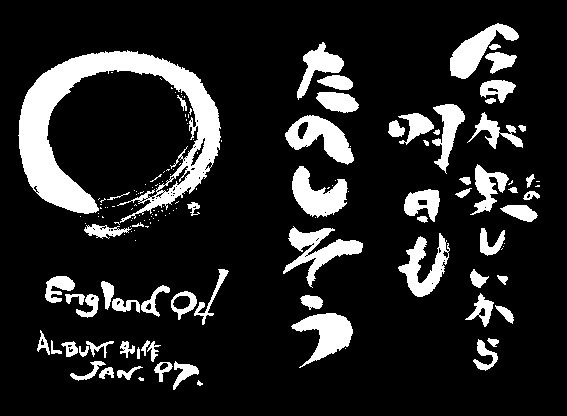 今日が楽しいから
たの
明日も
たのしそう
England 94
ALBUM 制作
JAN. 97.